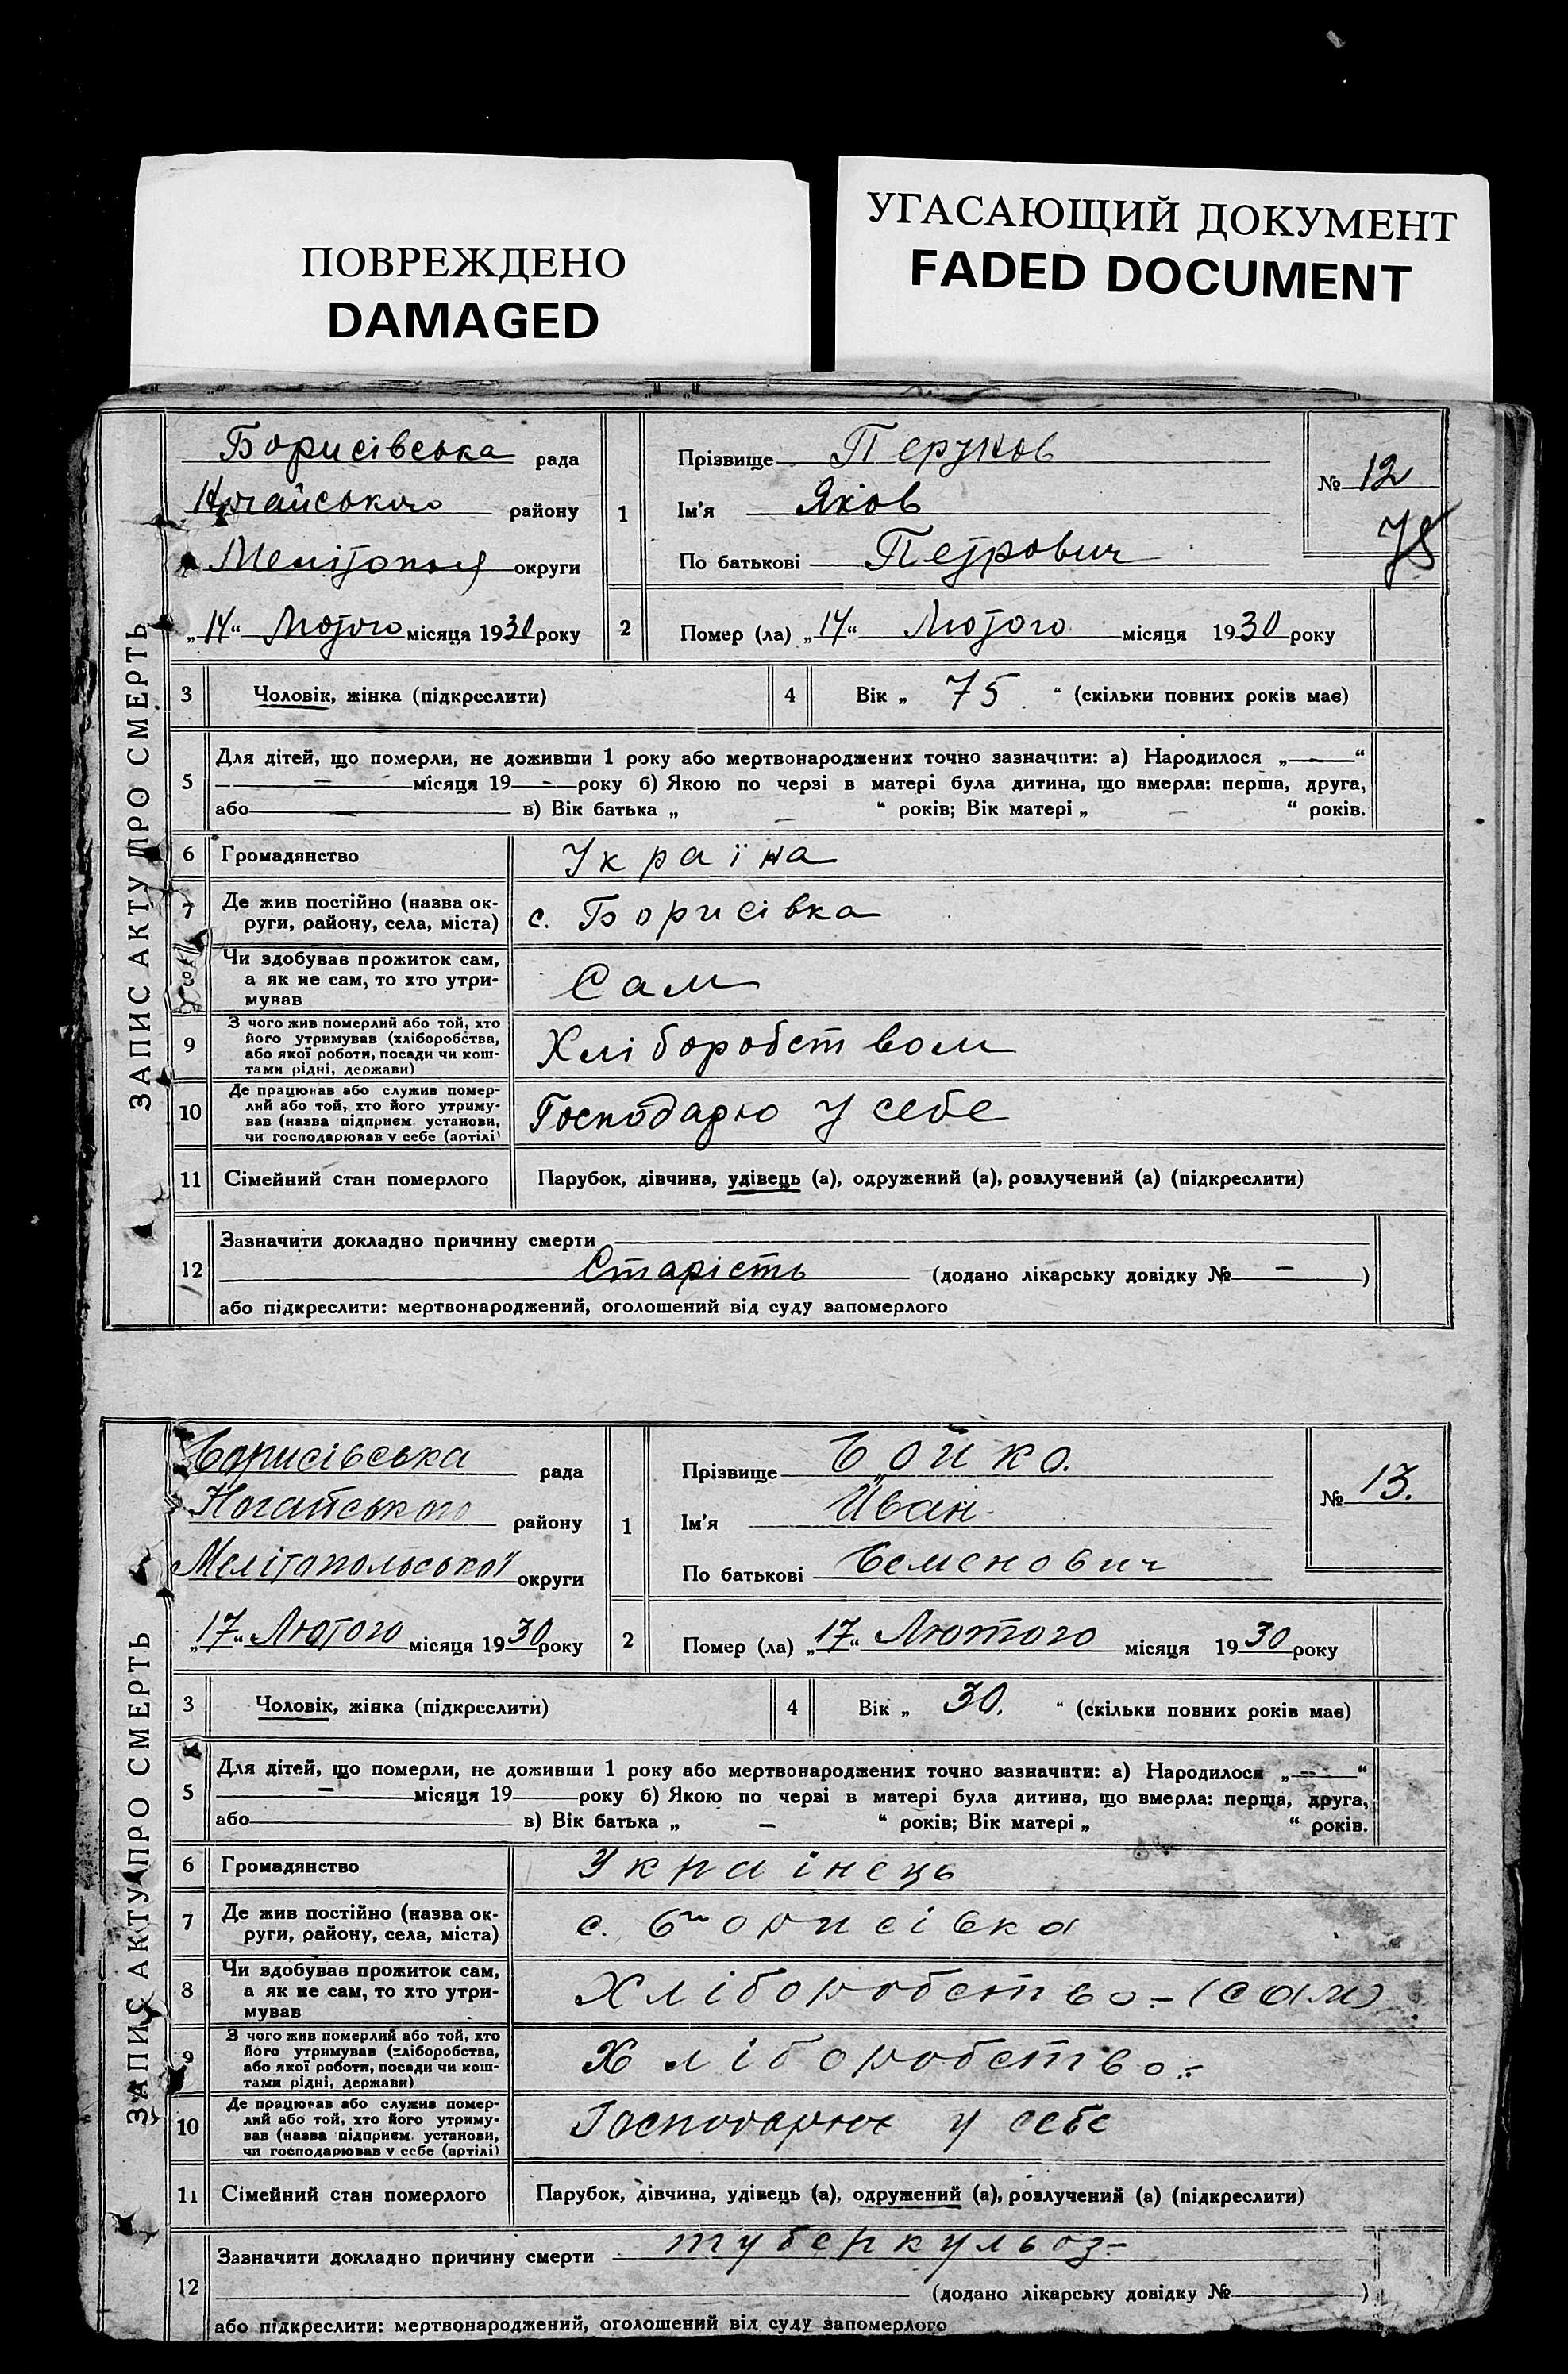 ПОВРЕЖДЕНО
DAMAGED
УГАСАЮЩИЙ ДОКУМЕНТ
FADED DOCUMENT
ЗАПИС АКТУ ПРО СМЕРТЬ
Борисівська рада
Ногайського району
Мелітополя округи
„14“ Лютого місяця 1930 року
1
Прізвище Перуков
Ім'я Яков
По батькові Петрович
№ 12
2
Помер (ла) „14“ Лютого місяця 1930 року
3 Чоловік, жінка (підкреслити)
4 Вік „ 75 “ (скільки повних років має)
5
Для дітей, що померли, не доживши 1 року або мертвонароджених точно зазначити: а) Народилося „—“
— місяця 19 - року б) Якою по черзі в матері була дитина, що вмерла: перша, друга,
або — в) Вік батька „ — “ років; Вік матері „ — “ років.
6 Громадянство Україна
7 Де жив постійно (назва ок-
руги, району, села, міста) с. Борисівка
8 Чи здобував прожиток сам,
а як не сам, то хто утри-
мував Сам
9 З чого жив померлий або той, хто
його утримував (хліборобства,
або якої роботи, посади чи кош-
тами рідні, держави) Хліборобством
10 Де працював або служив помер-
лий або той, хто його утриму-
вав (назва підприєм. установи,
чи господарював у себе (артілі) Господарю у себе
11 Сімейний стан померлого Парубок, дівчина, удівець (а), одружений (а), розлучений (а) (підкреслити)
12
Зазначити докладно причину смерти
Старість (додано лікарську довідку № — )
або підкреслити: мертвонароджений, оголошений від суду запомерлого
ЗАПИС АКТУ ПРО СМЕРТЬ
Борисівська рада
Ногайського району
Мелітопольської округи
„17“ Лютого місяця 1930 року
1
Прізвище Бойко.
Ім'я Иван
По батькові Семенович
№ 13.
2
Помер (ла) „17“ Лютого місяця 1930 року
3 Чоловік, жінка (підкреслити)
4 Вік „ 30. “ (скільки повних років має)
5
Для дітей, що померли, не доживши 1 року або мертвонароджених точно зазначити: а) Народилося „—“
— місяця 19 року б) Якою по черзі в матері була дитина, що вмерла: перша, друга,
або в) Вік батька „ — “ років; Вік матері „ “ років.
6 Громадянство Украінець
7 Де жив постійно (назва ок-
руги, району, села, міста) с. Борисівка
8 Чи здобував прожиток сам,
а як не сам, то хто утри-
мував Хліборобство - (сам)
9 З чого жив померлий або той, хто
його утримував (хліборобства,
або якої роботи, посади чи кош-
тами рідні, держави) Хліборобство -
10 Де працював або служив помер-
лий або той, хто його утриму-
вав (назва підприєм. установи,
чи господарював у себе (артілі) у себе
11 Сімейний стан померлого Парубок, дівчина, удівець (а), одружений (а), розлучений (а) (підкреслити)
12
Зазначити докладно причину смерти туберкульоз -
(додано лікарську довідку № )
або підкреслити: мертвонароджений, оголошений від суду запомерлого